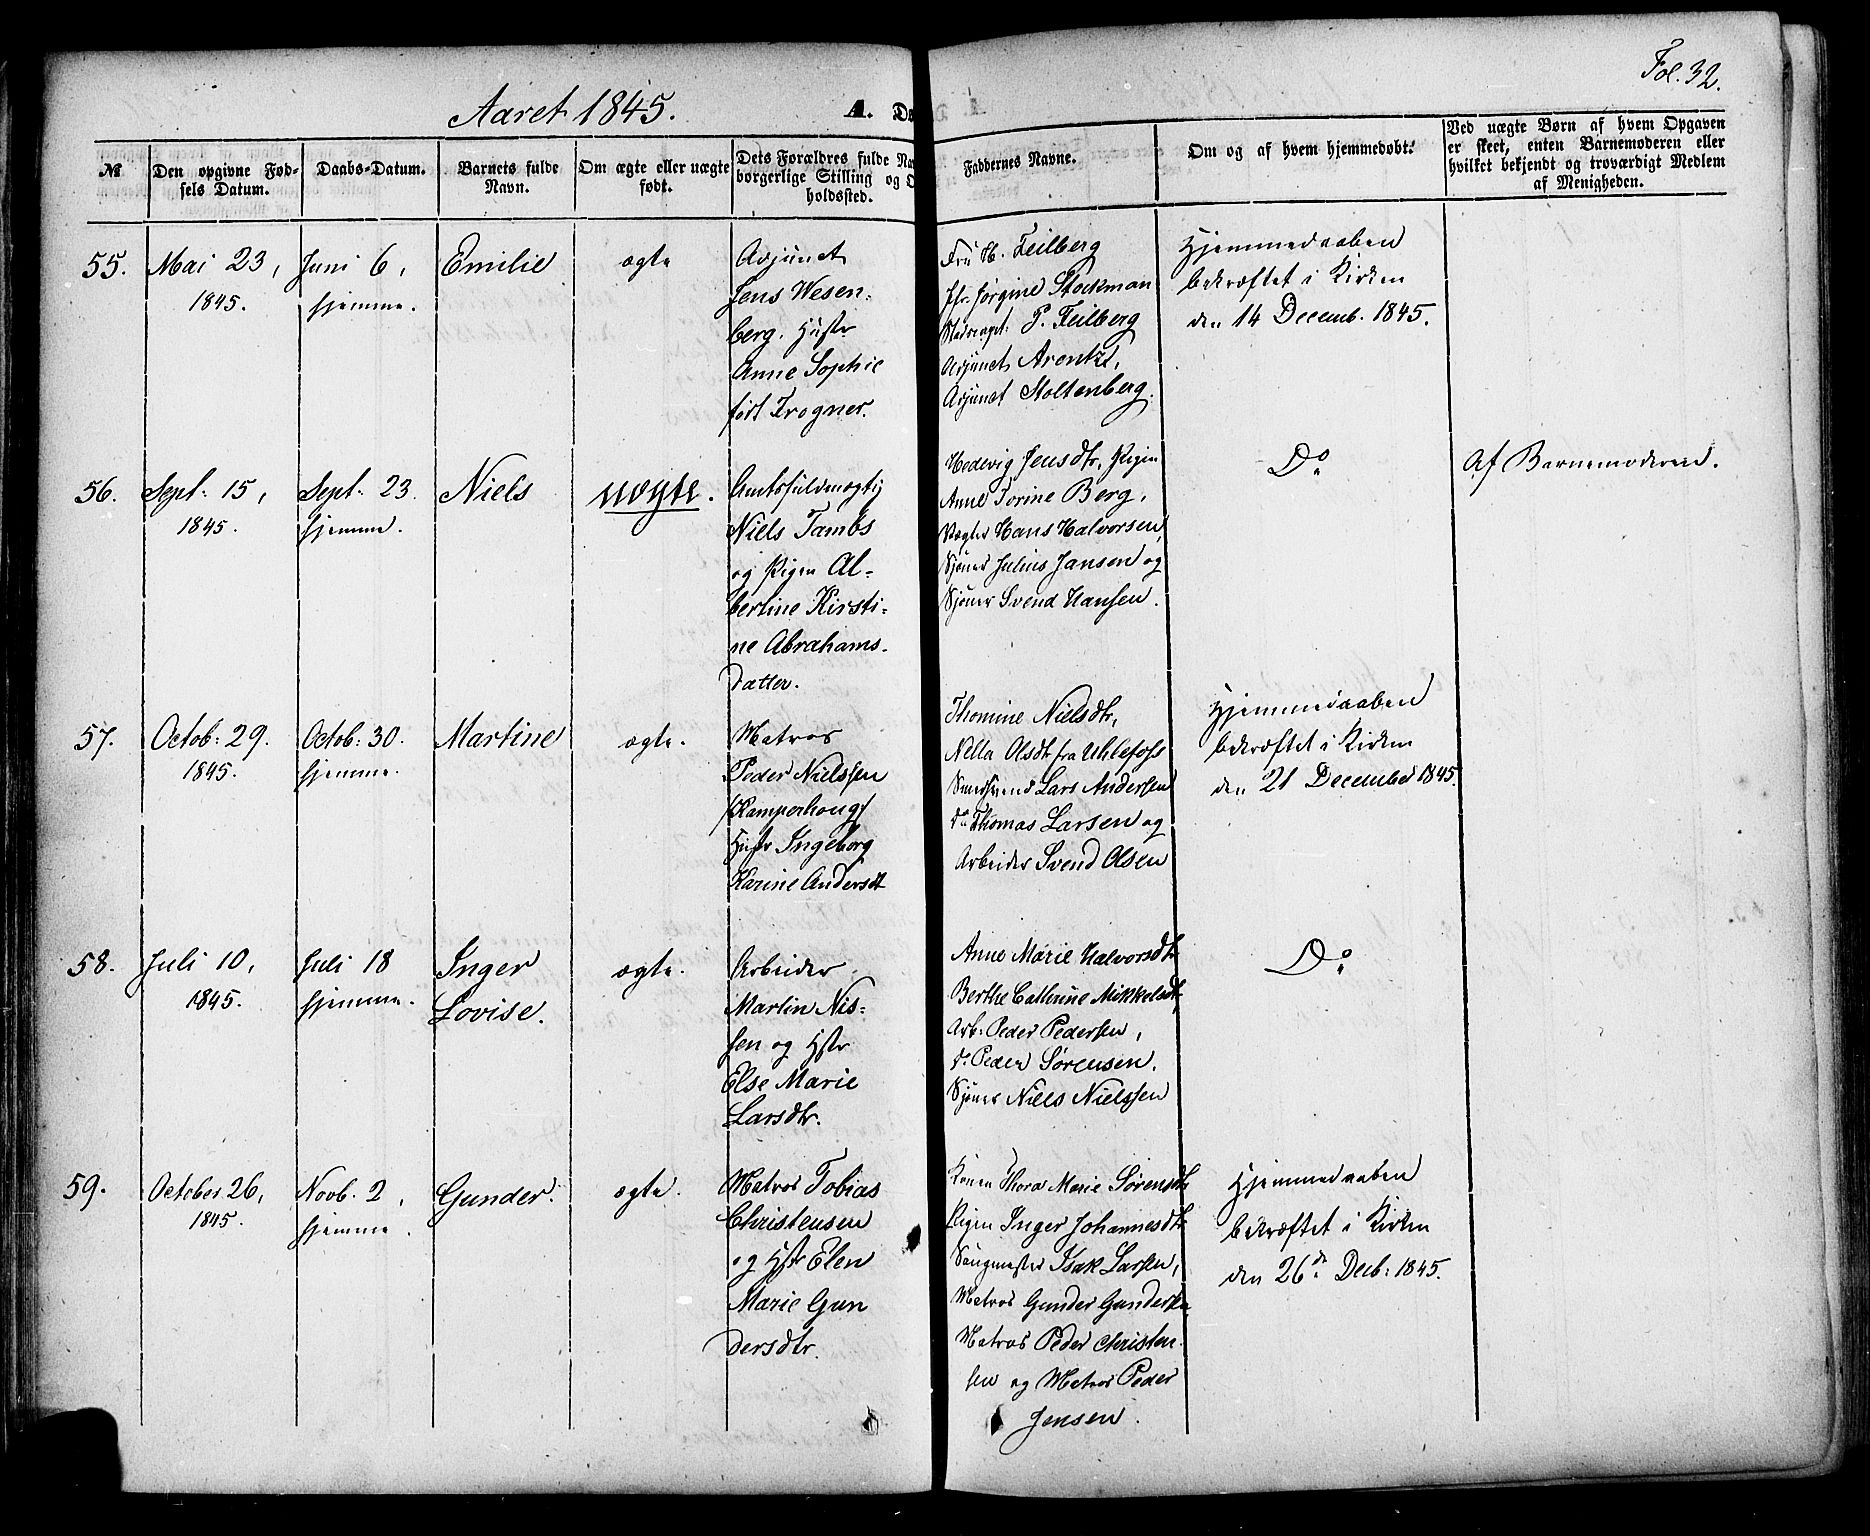 Fol. 32.
Aaret 1845.
A. Dø
№
Den opgivne Fød-
sels Datum.
Daabs-Datum.
Barnets fulde
Navn.
Om ægte eller uægte
født.
Dets Forældres fulde Na
borgerlige Stilling og O
holdssted.
Faddernes Navne.
Om og af hvem hjemmedøbt.
Ved uægte Børn af hvem Opgaven
er skeet, enten Barnemoderen eller
hvilket bekjendt og troværdigt Medlem
af Menigheden.
55.
Mai 23,
1845.
Juni 6,
hjemme.
Emilie
ægte
Adjunct
Jens Wesen-
berg. Hustr
Anne Sophie
født Trogner.
Fru H. Feilberg
Jfr. Jørgine Stockman
P. Feilberg
Adjunct Arentz,
Adjunct Stoltenberg.
Hjemmedaaben
bekræftet i Kirken
den 14 Decemb. 1845.
56.
Sept: 15,
1845.
Sept: 23.
hjemme.
Niels
uægte.
Amtsfuldmægtig
Niels Tambs
og Pigen Al-
bertine Kirsti-
ne Abrahams-
datter.
Hedevig Jensdtr, Pigen
Anne Torine Berg,
Vægter Hans Halvorsen,
Sjømd Julius Jansen og
Sjømd Svend Hansen.
Do
Af Barnemoderen.
57.
Octob: 29.
1845.
Octob: 30.
hjemme.
Martine
ægte.
Matros
Peder Nielssen
/Kamperhoug/
Hustr Ingeborg
Karine Andersdt
Thomine Nielsdtr,
Nella Olsdt fra Uhlefoss
Smedsvend Lars Andersen
Do Thomas Larsen og
Arbeider Svend Olsen
Hjemmedaaben
bekræftet i Kirken
den 21 December 1845.
58.
Juli 10,
1845.
Juli 18
hjemme.
Inger
Lovise.
ægte.
Arbeider
Martin Nis-
sen og Hstr
Else Marie
Larsdtr.
Anne Marie Halvorsdtr
Berthe Cathrine Mikkelsdt,
Arb: Peder Pedersen,
Do Peder Sørensen.
Sjømd Niels Nielssen
Do
59.
October 26,
1845.
Novb. 2,
hjemme.
Gunder.
ægte.
Matros Tobias
Christensen
og Hstr Elen
Marie Gun
dersdtr.
Konen Thora Marie Sørensdtr
Pigen Inger Johannesdtr
Isak Larsen,
Matros Gunder Gundersen
Matros Peder Christen-
sen og Matros Peder
Jensen.
Hjemmedaaben
bekræftet i Kirken
den 26de Decb: 1845.